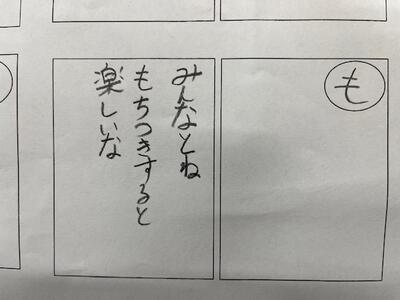 も
みんなとね
もちつきすると
楽しいな